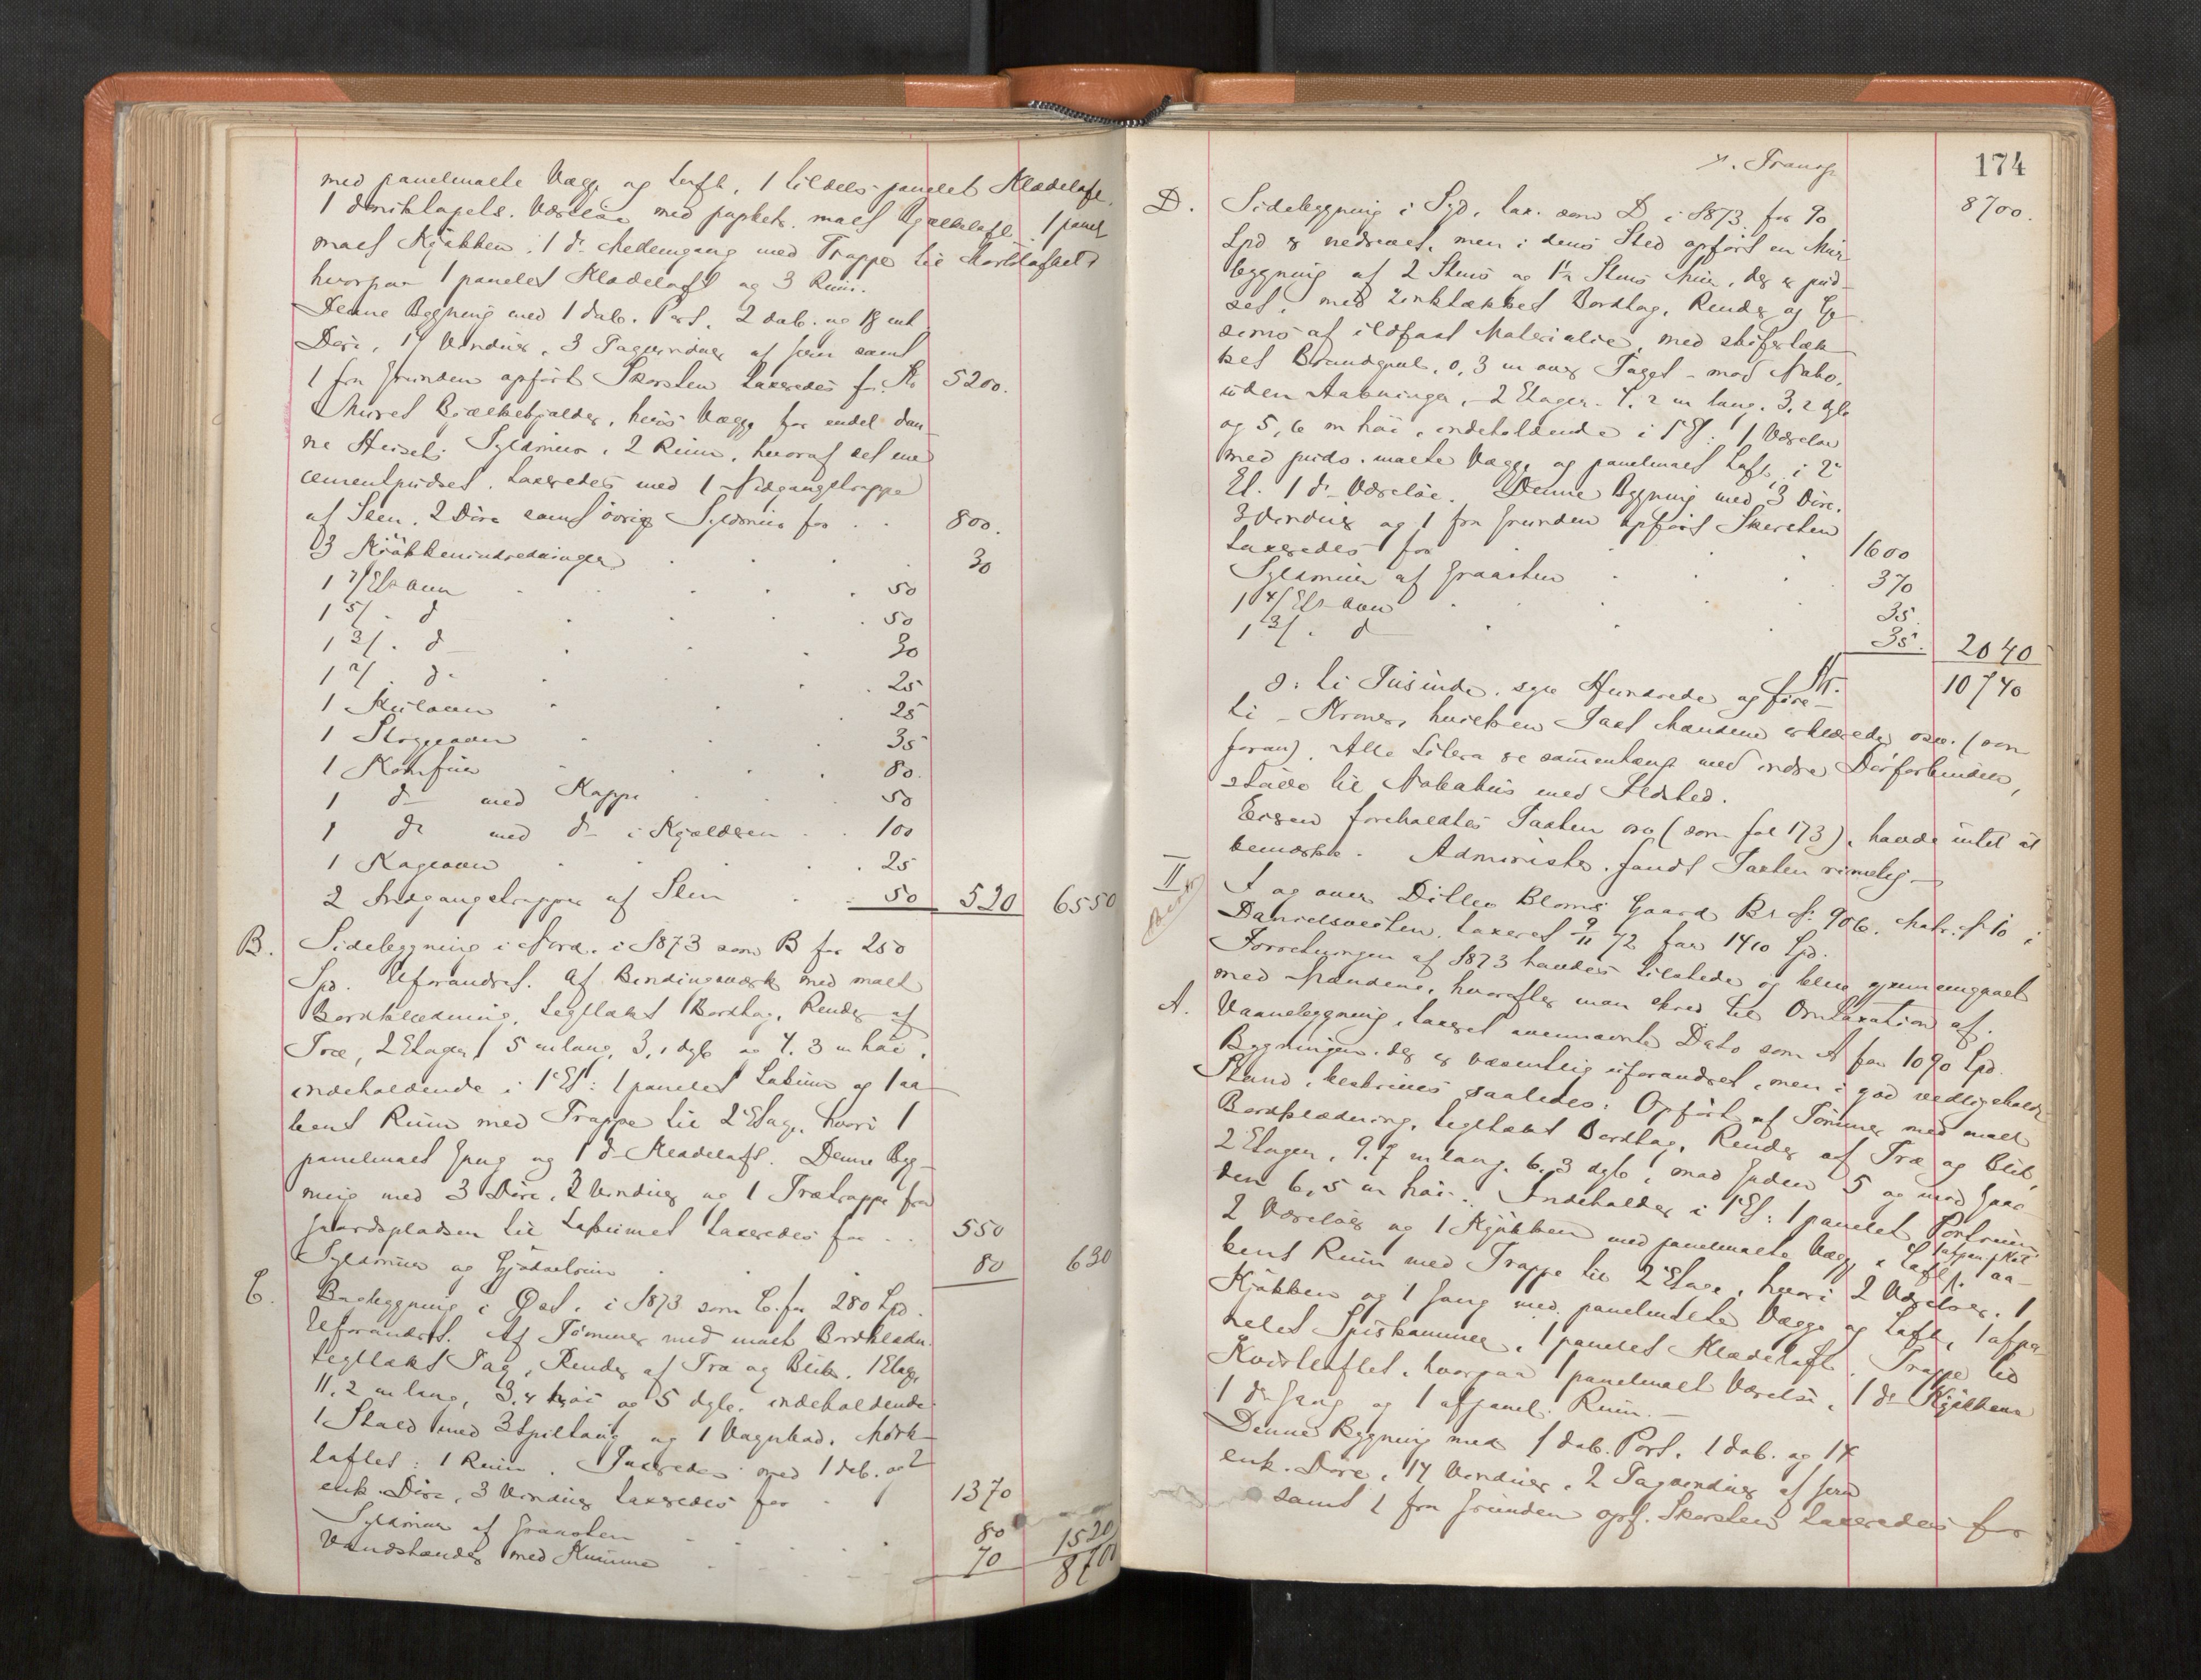 med panelmalte Vægge og Loft, 1 tildels panelet Klædeloft,
1 betræktapets. Værelse med papbetr. malt Bjælkeloft, 1 panel
malt Kjøkken, 1 do Mellemgang med Trappe til Mørkloftet
hvorpaa 1 panelet Klædeloft og 3 Rum.
Denne Bygning med 1 dob. Port, 2 dob. og 18 enk
Døre, 17 Vinduer, 3 Tagvinduer af Jern samt
1 fra Grunden opført Skorsten taxeredes for Kr 5200.
Muret Bjælkekjælder, hvis Vægge for endel dan-
ne Husets Syldmur, 2 Rum, hvoraf det ene
cementpudset, taxeredes med 1 Nedgangstrappe
af Sten, 2 Døre samt øvrige Syldmur for . . 800.
3 Kjøkkenindredninger . . . 30
1 7/Et-Ovn . . . . 50
1 5/ - d . . . . 50
1 3/ - d . . . 30
1 2/ - d . . . 25
1 Kulovn . . . 25
1 Stryeovn . . . 35
1 Komfur . . . 80.
1 do med Kappe . . . 50
1 do med do i Kjælderen . . 100
1 Kageovn . . . . 25
2 Indgangstrapper af Sten . . 50 520 6550
B. Sidebygning i Nord, i 1873 som B for 250
Spd. Uforandret. Af Bindingsværk med malt
Bordklædning, tegltækt Bordtag, Render af
Træ, 2 Etager, 5 m lang, 3,1 dyb og 4,3 m høi,
indeholdende i 1 Et: 1 panelet Lokum og 1 aa-
bent Rum med Trappe til 2 Etage, hvori 1
panelmalt Gang og 1 do Klædeloft. Denne Byg-
ning med 3 Døre, 2 Vinduer og 1 Trætrappe fra
Gaardspladsen til Lokumet taxeredes for . . 550
Syldmur og Gjødselrum . . . 80 630
C. Bagbygning i Øst, i 1873 som C. for 280 Spd.
Uforandret. Af Tømmer med malt Bordklædn.
tegltækt Tag, Render af Træ og Blik, 1 Etage,
11,2 m lang, 3,4 høi og 5 dyb. indeholdende
1 Stald med 3 Spiltaug og 1 Vognbod. Mørk-
loftet: 1 Rum. Taxeredes med 1 dob. og 2
enk. Døre, 3 Vinduer taxeredes for . 1370
Syldmur af Graasten . . . 80 1520
Vandstænder med Kumme . . . 70 8700
174
Transp
8700.
D. Sidebygning i Syd, tax. som D i 1873 for 90
Spd er nedrevet, men i dens Sted opført en Mur
bygning af 2 Stens og 1½ Stens Mur, der er pud-
set, med zinktækket Bordtag, Render og Ge-
sims af ildfast Materialie, med skifertæk-
ket Brandgavl, 0,3 m over Taget - mod Nabo,
uden Aabninger, - 2 Etager. 4,2 m lang, 3,2 dyb
og 5,6 m høi, indeholdende i 1 Et: 1 Værelse
med puds. malte Vægge og panelmalt Loft, i 2
Et. 1 do Værelse. Denne Bygning med 3 Døre,
3 Vinduer og 1 fra Grunden opført Skorsten
taxeredes for . . . 1600
Syldmur af Graasten . . . 370
1 4/Et-Ovn . . . . 35.
1 3/ - d . . . 35. 2040
Kr. 10740
o: ti Tusinde, syv Hundrede og fire-
ti - Kroner, hvilken Taxt Mændene erklærede osv. (som
foran). Alle Litera er sammenhæng med indre Dørforbindelse,
støder til Nabohus med Ildsted.
Eieren foreholdtes Taxten osv (som fol 173), havde intet at
bemærke. Administr. fandt Taxten rimelig. -
II I og over Ditlev Bloms Gaard Br N: 906, Matr. N 10 i
Danielsveiten, taxeret 9/11 72 for 1410 Spd.
Forretningen af 1873 havdes tilstede og blev gjennemgaaet
med Mændene, hvorefter man skred til Omtaxation af:
A. Vaanebygning, taxeret ovennævnte Dato som A for 1090 Spd.
Bygningen, der er væsentlig uforandret, men i god vedligeholdt
Stand, beskrives saaledes: Opført af Tømmer med malt
Bordklædning, tegltækt Bordtag, Render af Træ og Blik,
2 Etager, 9,7 m lang, 6,3 dyb, mod Gaden 5 og mod Gaar-
den 6,5 m høi. Indeholder i 1 Et: 1 panelet Portrum
2 Værelser og 1 Kjøkken med panelmalte Vægge & Loft, 1 aa-
bent Rum med Trappe til 2 Etage, hvori 2 Værelser, 1
Kjøkken og 1 Gang med panelmalte Vægge og Loft, 1 afpa-
nelet Spiskammer, 1 panelet Klædeloft. Trappe til
Kvistloftet, hvorpaa 1 panelmalt Værelse, 1 do Kjøkken
1 do Gang og 1 afpanel. Rum. -
Denne Bygning med 1 dob. Port, 1 dob. og 14
enk. Døre, 14 Vinduer, 2 Tagvinduer af Jern
samt 1 fra Grunden opf. Skorsten taxeredes for